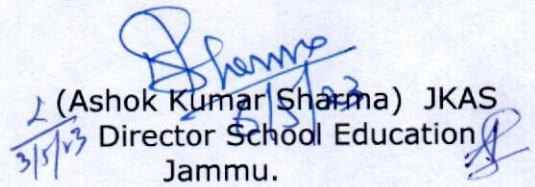 Sharma
(Ashok Kumar Sharma) JKAS
3/5/23 Director School Education
Jammu.